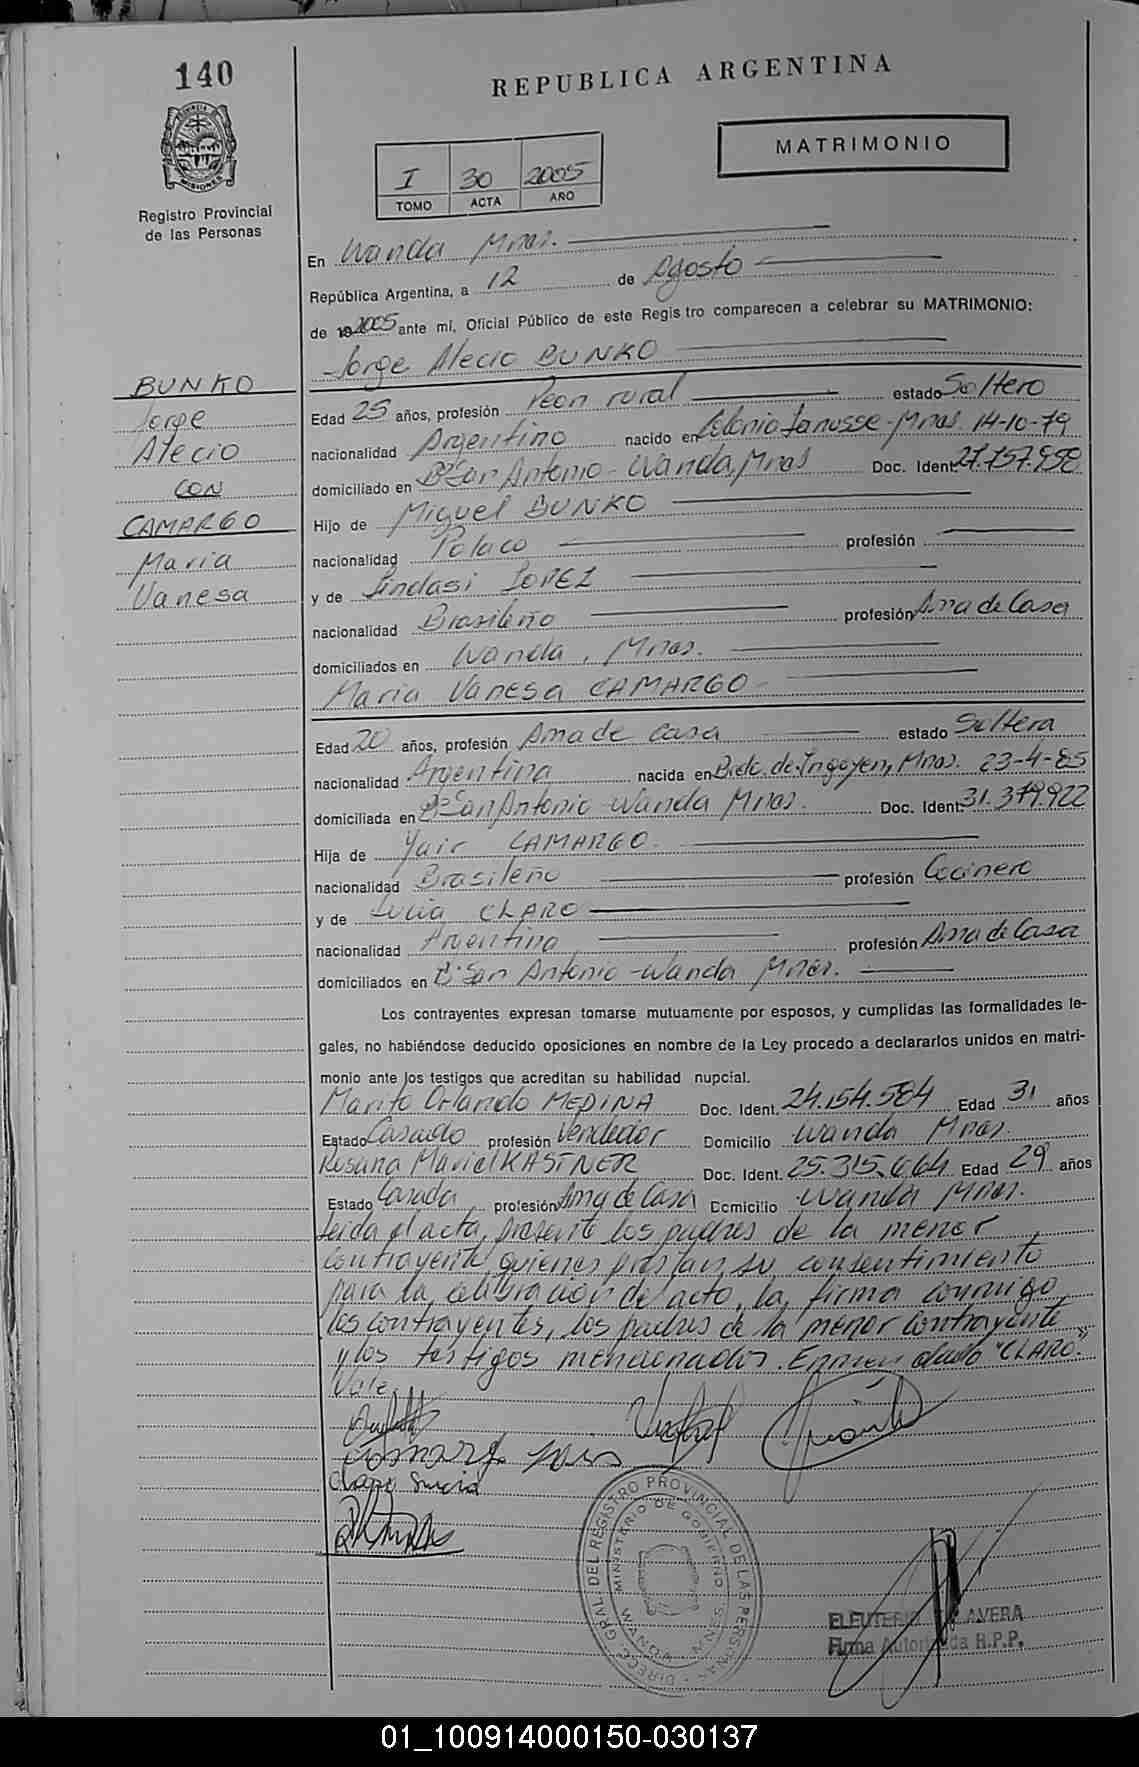 140
REPUBLICA ARGENTINA
PROVINCIA DE MISIONES
Registro Provincial
de las Personas
MATRIMONIO
I 30 2005
TOMO ACTA AÑO
En Wanda Mnes.
República Argentina, a 12 de Agosto
de 2005 ante mí, Oficial Público de este Registro comparecen a celebrar su MATRIMONIO:
Jorge Alecio BUNKO
BUNKO
Jorge
Alecio
CON
CAMARGO
Maria
Vanesa
Edad 25 años, profesión Peon rural estado Soltero
nacionalidad Argentino nacido en Colonia Lanusse-Mnes. 14-10-79
domiciliado en Bº San Antonio-Wanda, Mnes Doc. Ident. 27.757.958
Hijo de Miguel BUNKO
nacionalidad Polaco profesión
y de LOPEZ
nacionalidad Brasileño profesión Ama de Casa
domiciliados en Wanda, Mnes.
Maria Vanesa CAMARGO
Edad 20 años, profesión Ama de Casa estado Soltera
nacionalidad Argentina nacida en Bdo. de Irigoyen, Mnes. 23-4-85
domiciliada en Bº San Antonio-Wanda Mnes. Doc. Ident. 31.379.922
Hija de Yair CAMARGO
nacionalidad Brasileño profesión Cocinero
y de Lucia CLARO
nacionalidad Argentina profesión Ama de Casa
domiciliados en Bº San Antonio-Wanda Mnes.
Los contrayentes expresan tomarse mutuamente por esposos, y cumplidas las formalidades le-
gales, no habiéndose deducido oposiciones en nombre de la Ley procedo a declararlos unidos en matri-
monio ante los testigos que acreditan su habilidad nupcial.
Marito Orlando MEDINA Doc. Ident. 24.154.584 Edad 31 años
Estado Casado profesión Vendedor Domicilio Wanda Mnes.
Rosana Mariel KASTNER Doc. Ident. 25.315.664 Edad 29 años
Estado Casada profesión Ama de Casa Domicilio Wanda Mnes.
Leida el acta, presente los padres de la menor
contrayente quienes prestan su consentimiento
para la celebracion del acto, la firma conmigo
los contrayentes, los padres de la menor contrayente
y los testigos mencionados. Enmendado "CLARO"
Vale.
Camargo Yair
Claro Lucia
DIRECC. GRAL. DEL REGISTRO PROVINCIAL DE LAS PERSONAS
MINISTERIO DE GOBIERNO
WANDA MNES.
Firma Autorizada R.P.P.
01_100914000150-030137